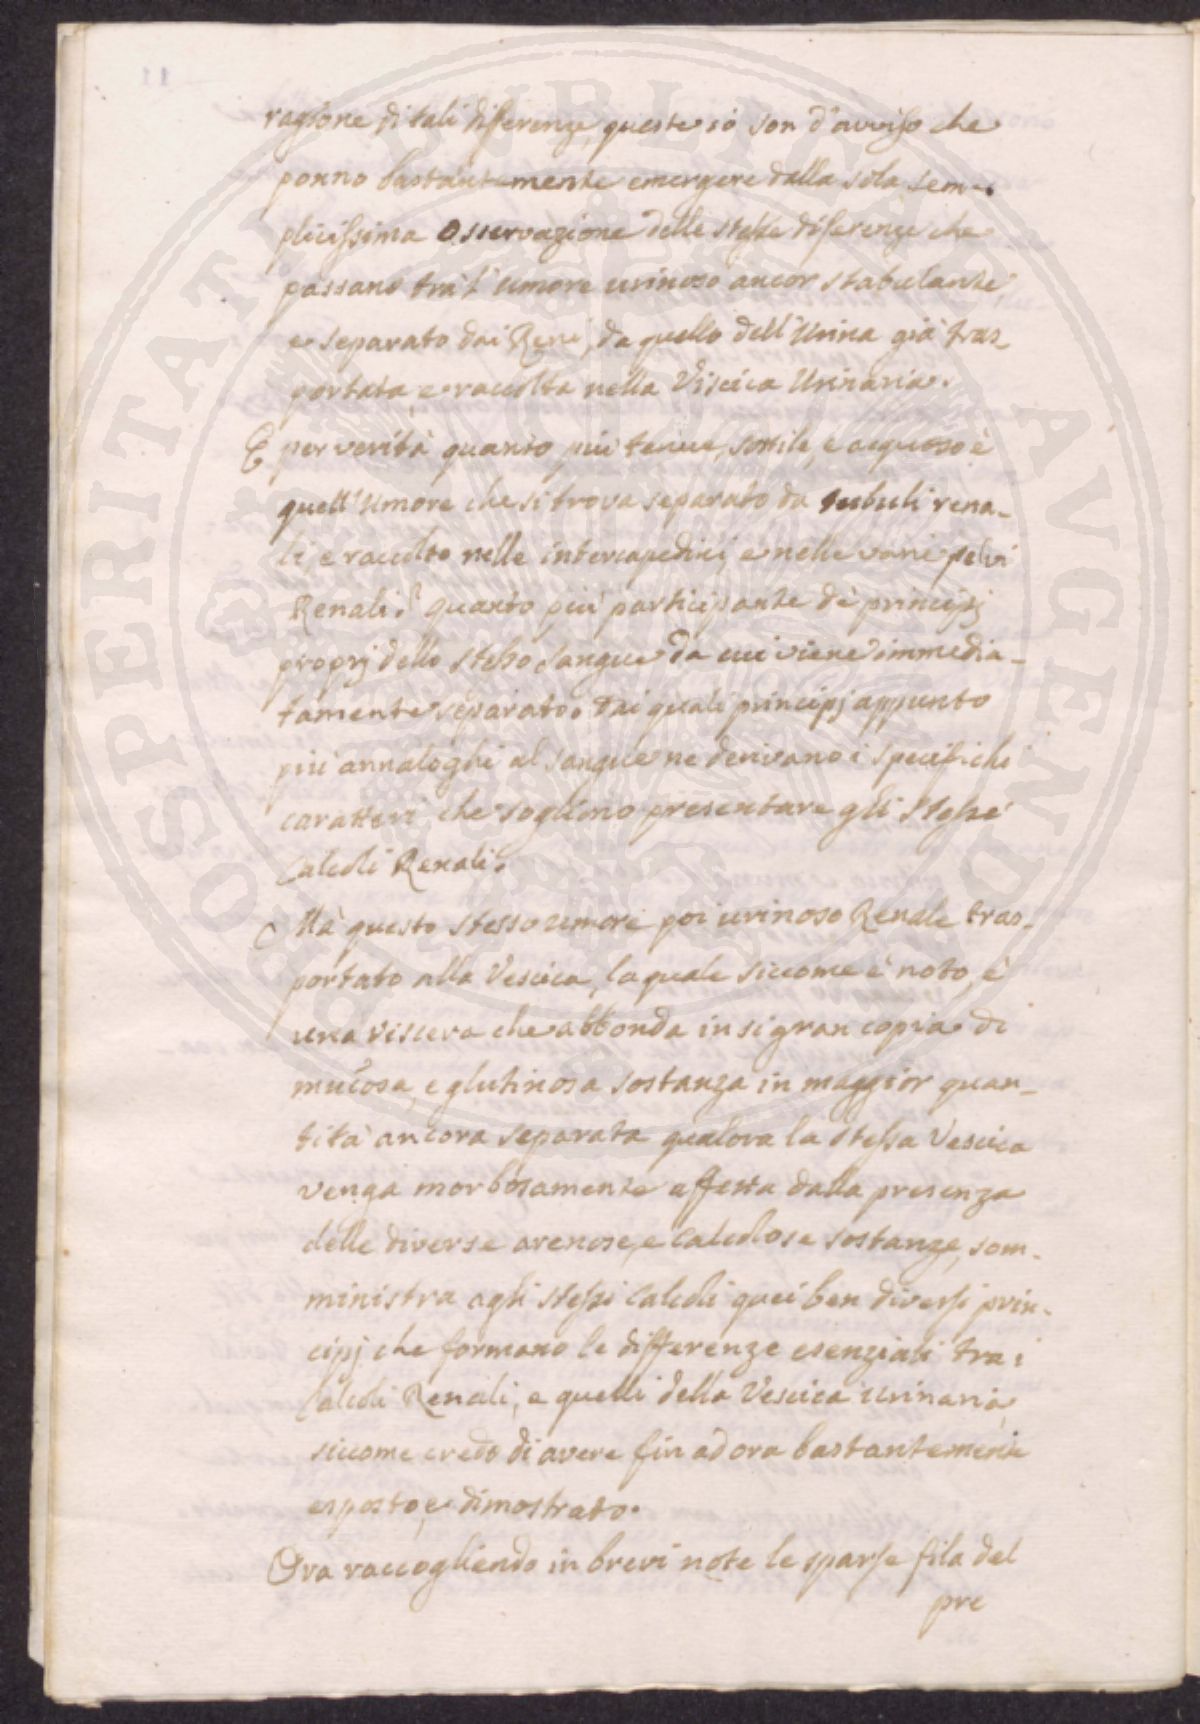 ragione di tali differenze, queste io son d'avviso che
ponno bastantemente emergere dalla sola sem-
plicissima Osservazione delle stesse diferenze che
passano tra l'umore urinoso ancor stabulante,
e separato dai Reni, da quello dell'Urina già tras-
portata, e raccolta nella Viscica Urinaria.
E per verità quanto più tenue, sottile, e acquoso è
quell'Umore che si trova separato da tubuli rena-
li, e raccolto nelle intercapedini, e nelle varie pelvi
Renali? quanto più participante de principj
proprj dello stesso Sangue da cui viene immedia-
tamente separato. Dai quali principj appunto
più annaloghi al Sangue ne derivano i specifichi
caratteri che sogliono presentare gli stessi
Calcoli Renali.
Mà questo stesso umore poi urinoso Renale tras-
portato alla Vescica, la quale siccome è noto, è
una viscera che abbonda in si gran copia di
mucosa, e glutinosa sostanza in maggior quan-
tità ancora separata qualora la stessa Vescica
venga morbosamente affetta dalla presenza
delle diverse arenose, e Calcolose sostanze, som-
ministra agli stessi Calcoli quei ben diversi prin-
cipj che formano le differenze esenziali tra i
Calcoli Renali, e quelli della Vescica Urinaria,
siccome credo di avere fin ad ora bastantemente
esposto, e dimostrato.
Ora raccogliendo in brevi note le sparse fila del
pre
PROSPERITATI PUBLICAE AVGENDAE
11